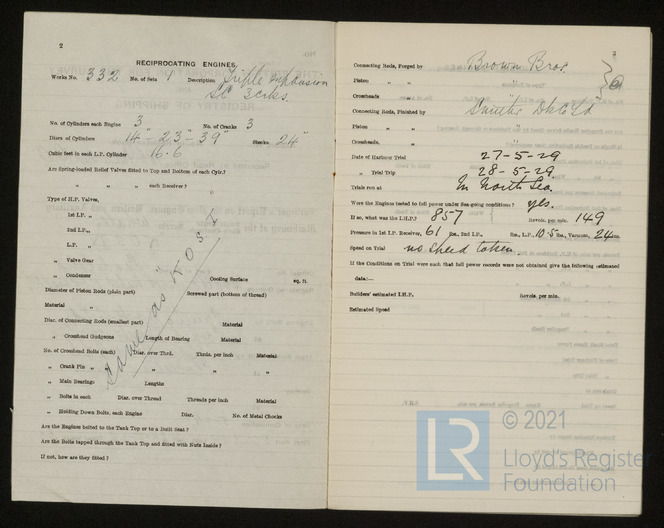 2
RECIPROCATING ENGINES.
Works No. 332 No. of Sets 1 Description Triple Expansion
SC 3 cks.
No. of Cylinders each Engine 3 No. of Cranks 3
Diars of Cylinders 14" 23" - 39" Stroke 24"
Cubic feet in each L.P. Cylinder 16.6
Are Spring-loaded Relief Valves fitted to Top and Bottom of each Cylr.?
" " " each Receiver?
Type of H.P. Valves,
1st I.P. "
2nd I.P. "
L.P. "
" Valve Gear
" Condenser Cooling Surface sq. ft.
Diameter of Piston Rods (plain part) Screwed part (bottom of thread)
Material
Diar. of Connecting Rods (smallest part) Material
" Crosshead Gudgeons Length of Bearing Material
No. of Crosshead Bolts (each) Diar. over Thrd. Thrds. per inch Material
" Crank Pin " " " "
" Main Bearings Lengths
" Bolts in each Diar. over Thread Threads per inch Material
" Holding Down Bolts, each Engine Diar. No. of Metal Chocks
Are the Engines bolted to the Tank Top or to a Built Seat?
Are the Bolts tapped through the Tank Top and fitted with Nuts Inside?
If not, how are they fitted?
Same as
3
Connecting Rods, Forged by Brown Bros.
Piston " "
Crossheads, "
Connecting Rods, Finished by Smiths Dk Co Ld
Piston " "
Crossheads, "
Date of Harbour Trial 27-5-29
" Trial Trip 28-5-29.
Trials run at In North Sea
Were the Engines tested to full power under Sea-going conditions? yes.
If so, what was the I.H.P.? 857 Revols. per min. 149
Pressure in 1st I.P. Receiver, 61 lbs., 2nd I.P., lbs., L.P., 10.5 lbs., Vacuum, 24 ins.
Speed on Trial no speed taken
If the Conditions on Trial were such that full power records were not obtained give the following estimated
data:—
Builders' estimated I.H.P. Revols. per min.
Estimated Speed
LR
© 2021
Lloyd's Register
Foundation